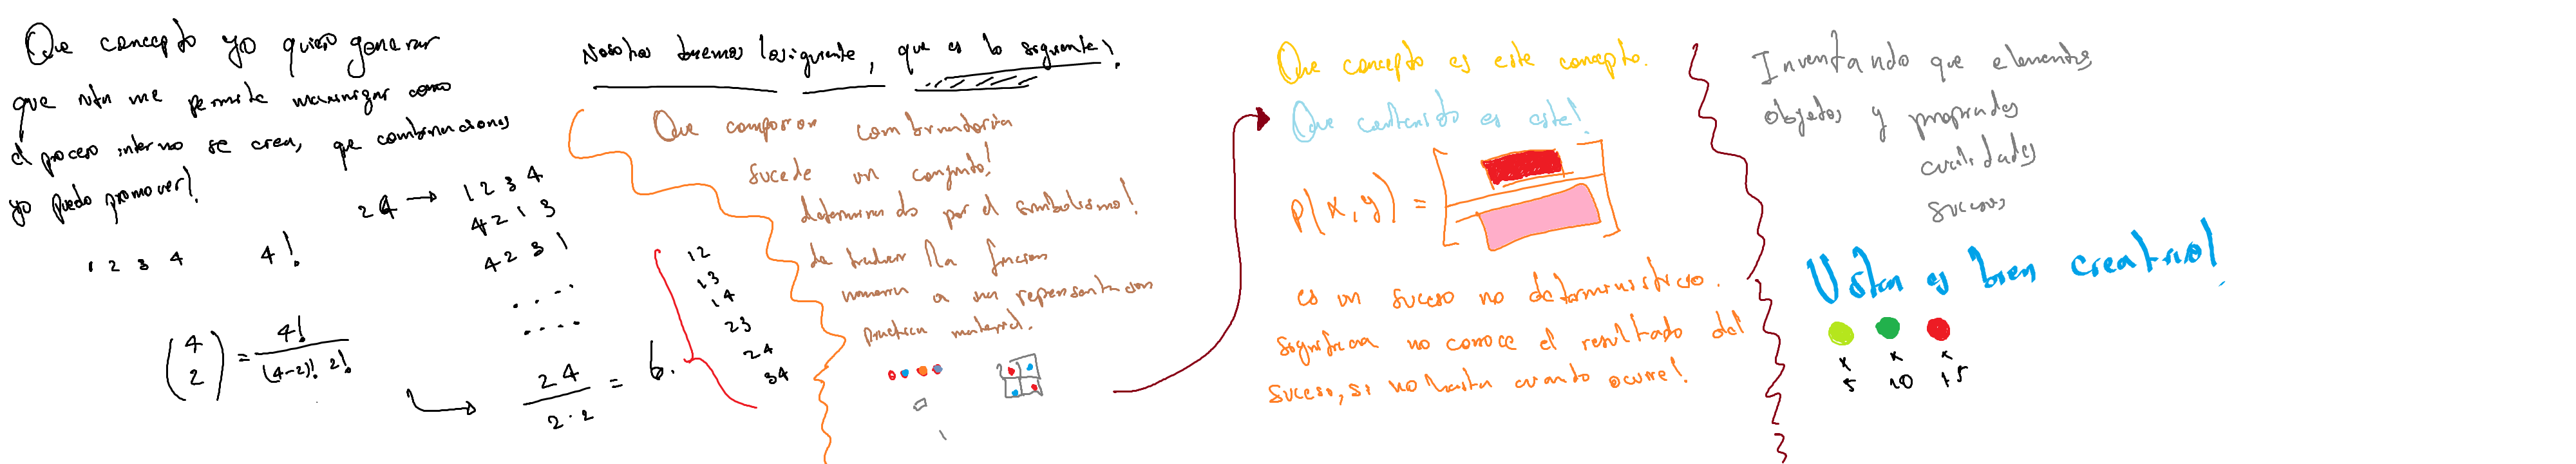 Que concepto yo quiero generar
que me permite maximizar como
el proceso interno se crea, que combinaciones
yo puedo promover!
1 2 3 4 4!
24 → 1 2 3 4
4 2 1 3
4 2 3 1
. . . .
. . . .
(4 2) = 4! / (4-2)! 2!
24 / 2·2 = 6.
12
13
14
23
24
34
Nosotros tenemos lo siguiente, que es lo siguiente!
Que combinatoria
sucede un conjunto!
determinado por el simbolismo!
de la funcion
a una representacion
practica material.
Que concepto es este concepto.
Que contenido es este!
P(x,y) =
es un suceso no deterministico.
significa no conoce el resultado del
suceso, si no hasta cuando ocurre!
Inventando que elementos
objetos y propiedades
cualidades
sucesos
Usted es bien creativo!
x x x
5 10 15